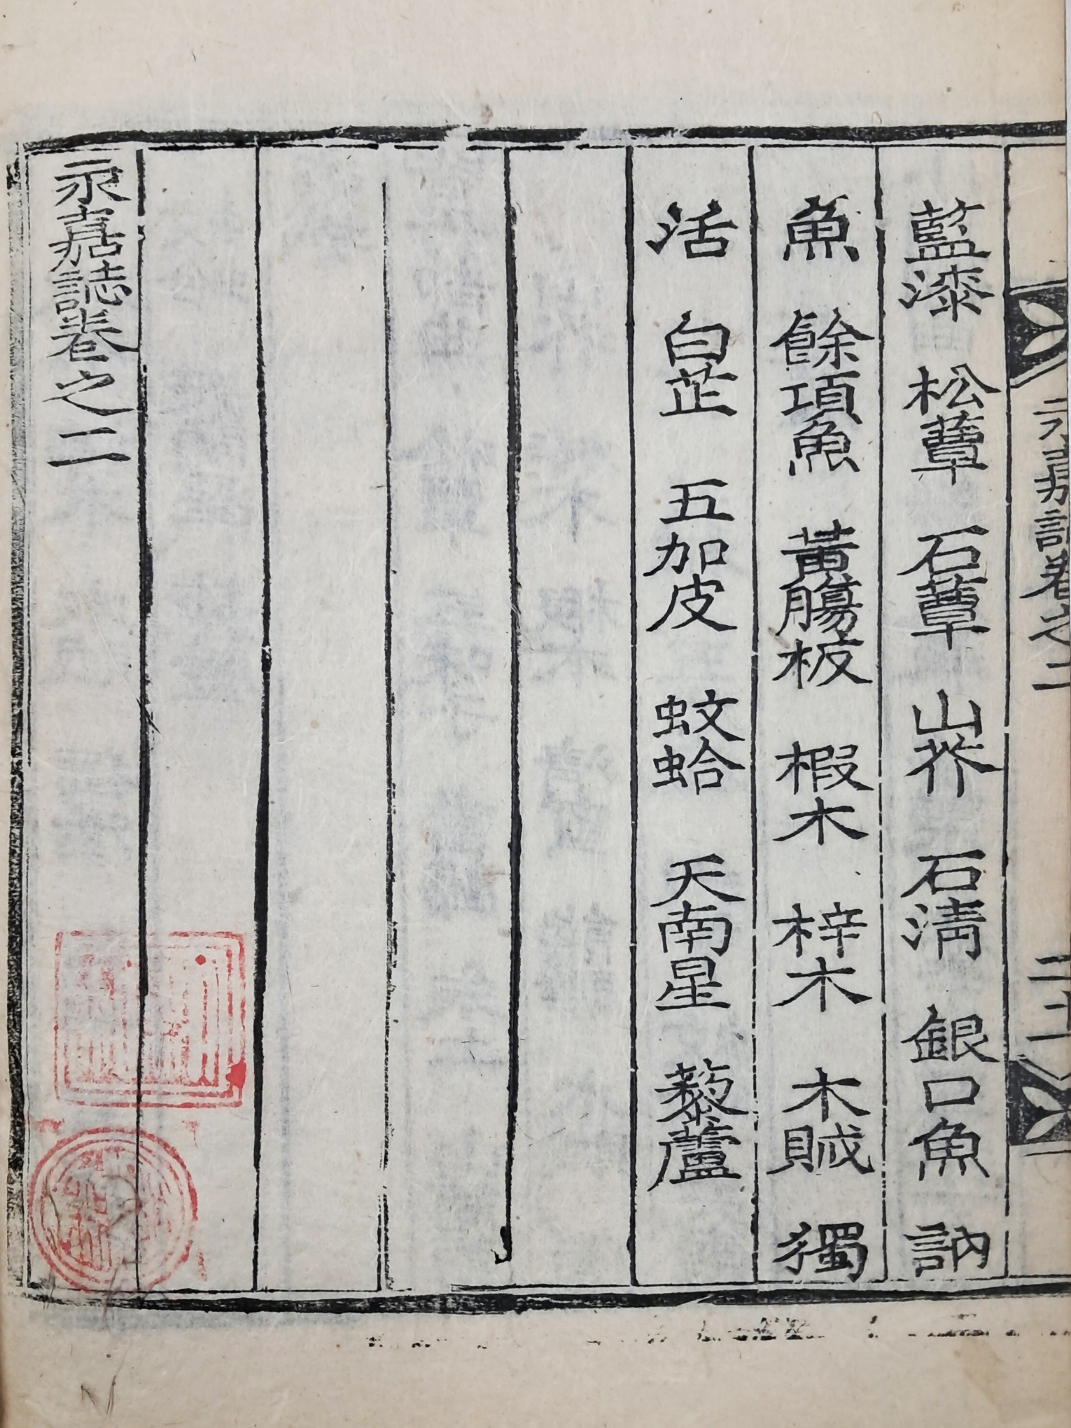 永嘉誌卷之二
藍漆 松蕈 石蕈 山芥 石淸 銀口魚 訥
魚 餘項魚 黃膓板 椵木 梓木 木賊 獨
活 白芷 五加皮 蚊蛤 天南星 藜蘆
永嘉誌卷之二